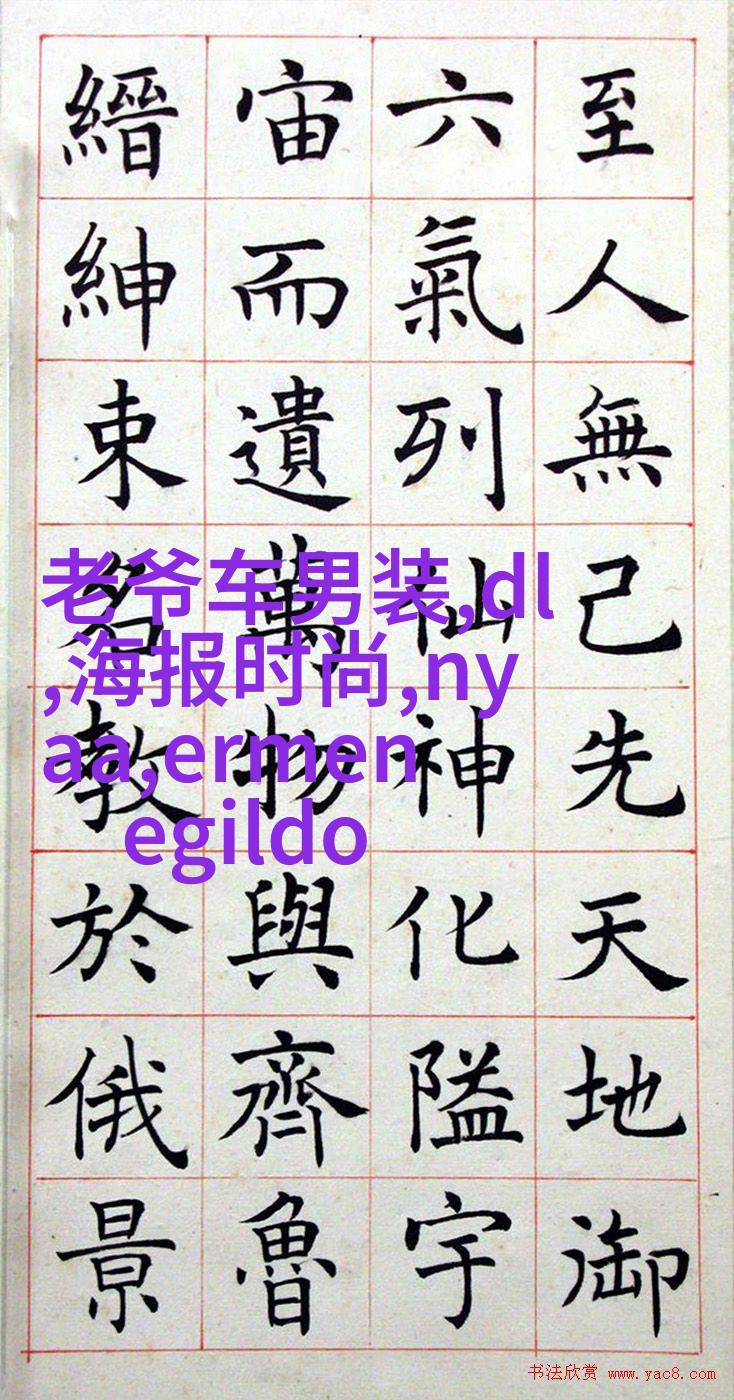 至人無己先天地御
六氣列仙神化隘宇
宙而遺萬物與齊魯
縉紳束名教於俄景
老爷车男装,dl
,海报时尚,ny
aa,ermen
egildo
书法欣赏 www.yac8.com